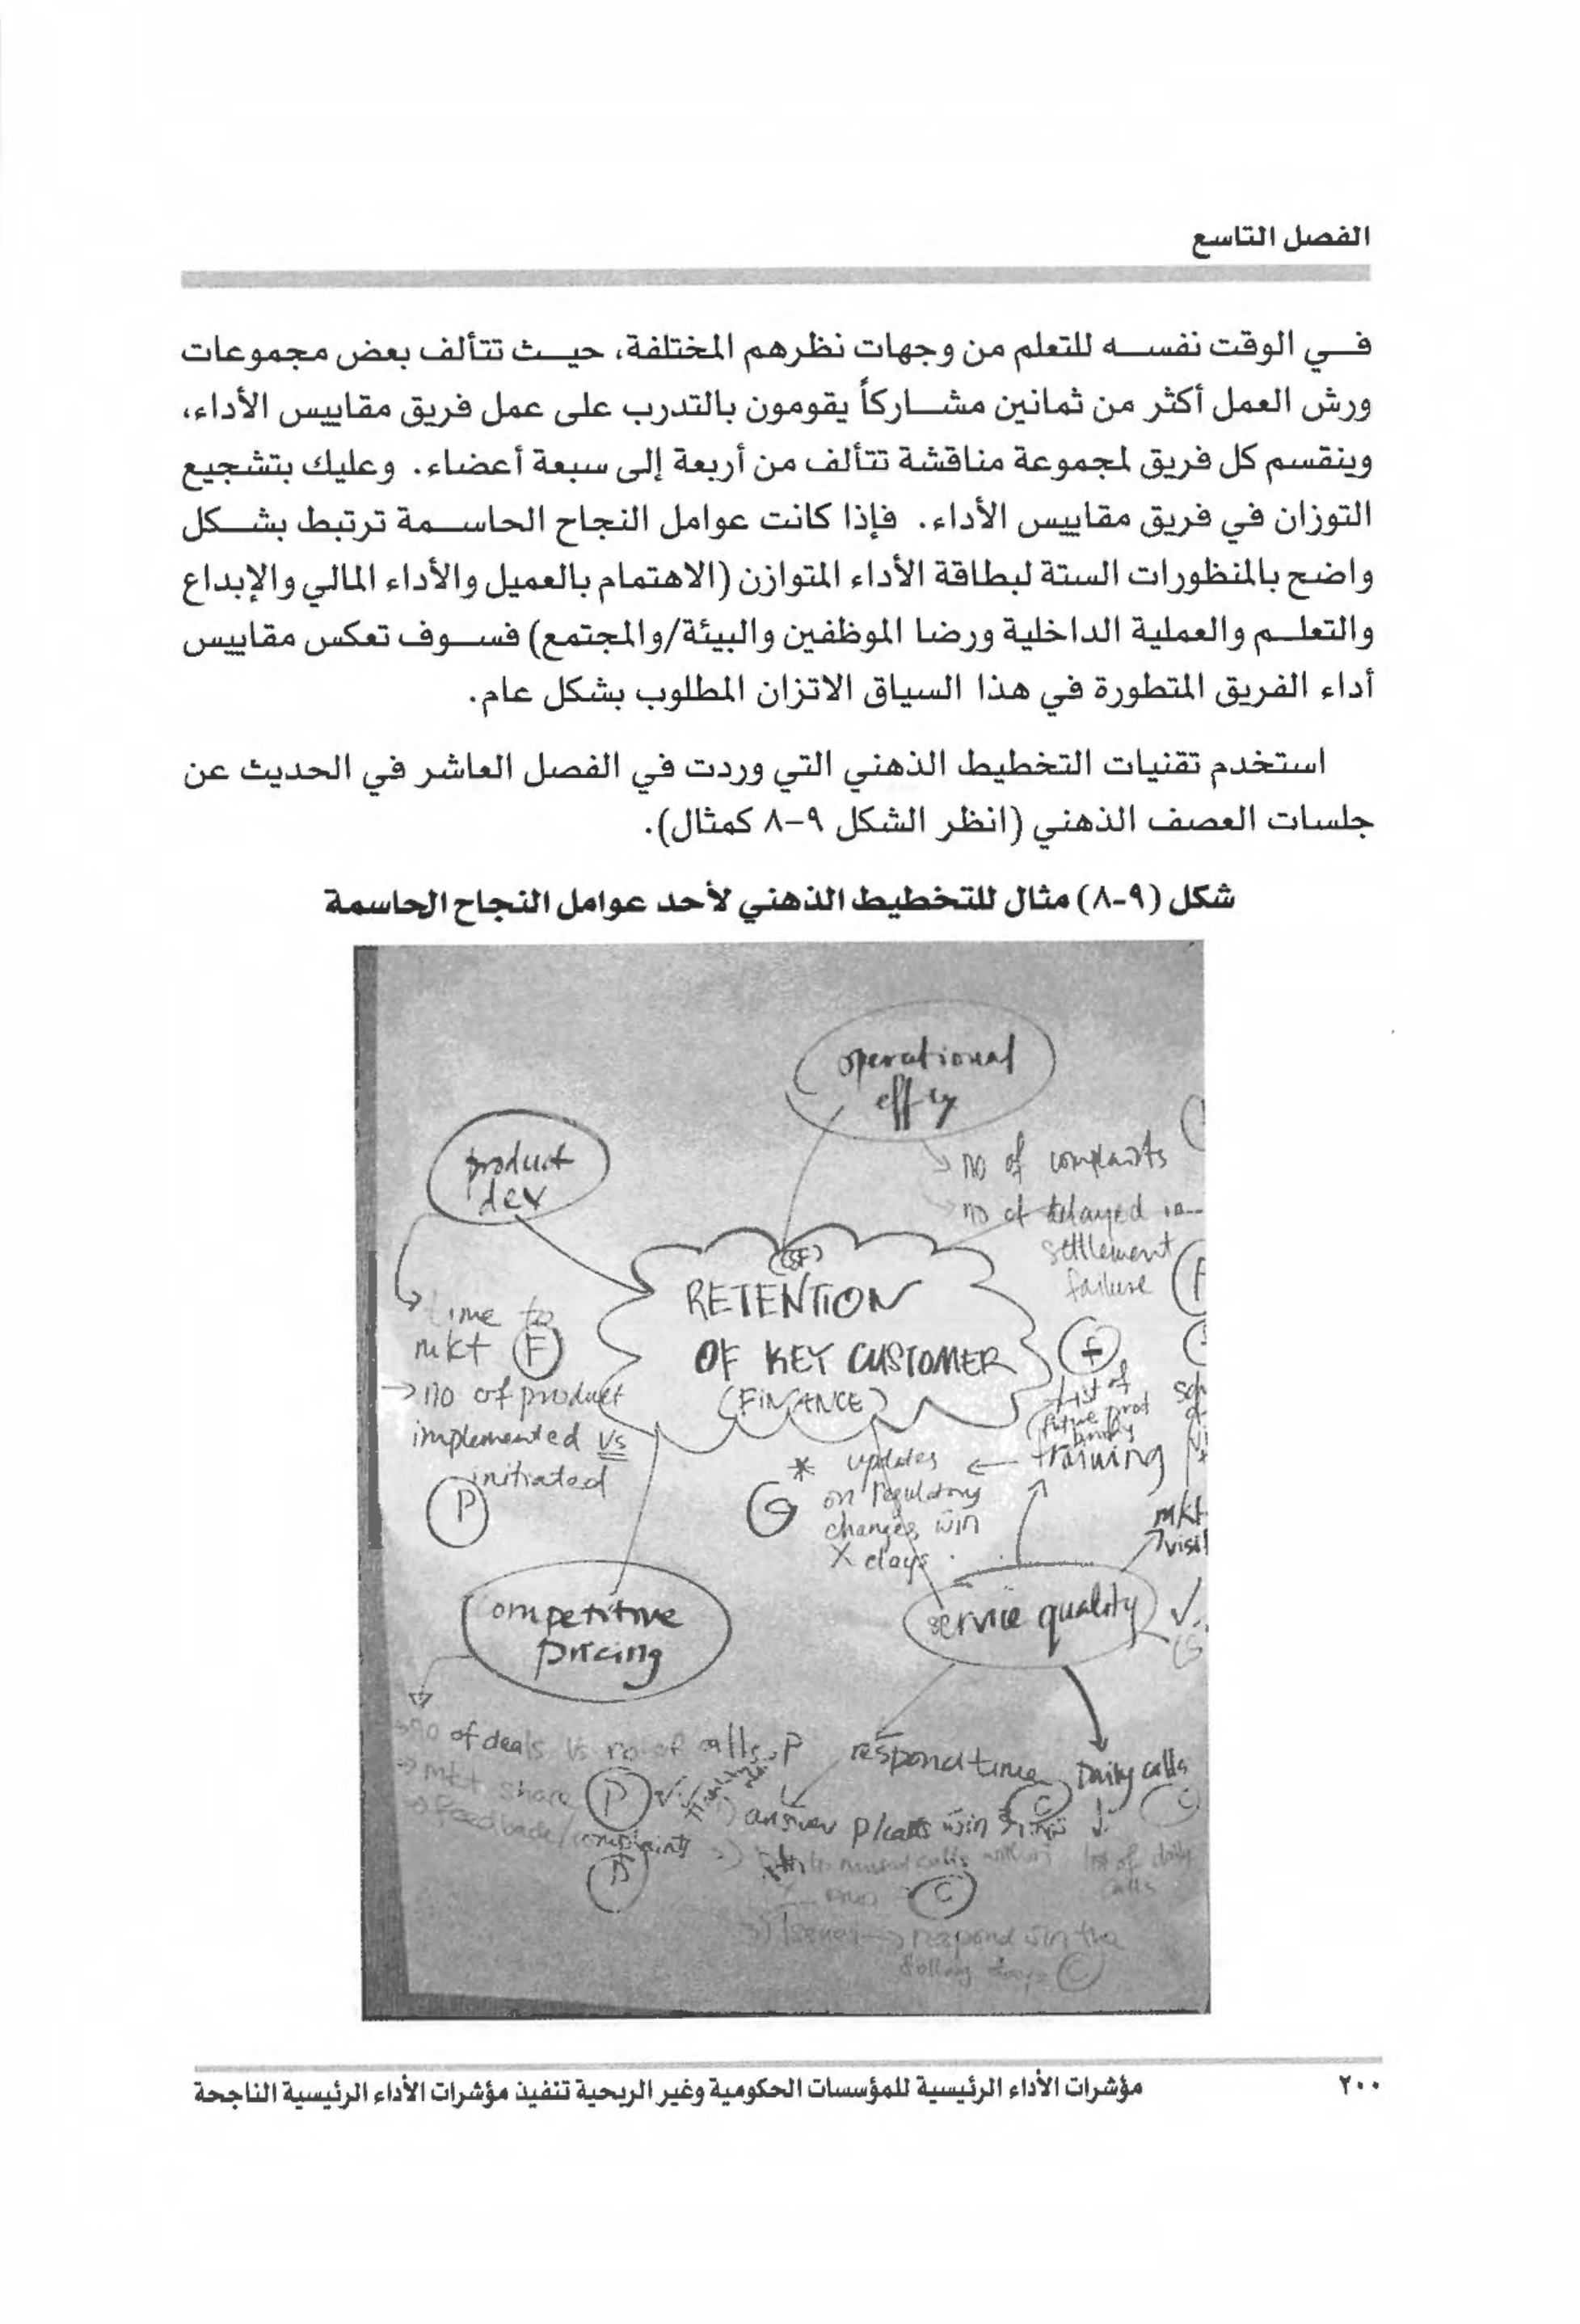 الفصل التاسع
في الوقت نفسه للتعلم من وجهات نظرهم المختلفة، حيث تتألف بعض مجموعات
ورش العمل أكثر من ثمانين مشاركاً يقومون بالتدرب على عمل فريق مقاييس الأداء،
وينقسم كل فريق لمجموعة مناقشة تتألف من أربعة إلى سبعة أعضاء. وعليك بتشجيع
التوزان في فريق مقاييس الأداء. فإذا كانت عوامل النجاح الحاسمة ترتبط بشكل
واضح بالمنظورات الستة لبطاقة الأداء المتوازن (الاهتمام بالعميل والأداء المالي والإبداع
والتعلم والعملية الداخلية ورضا الموظفين والبيئة/والمجتمع) فسوف تعكس مقاييس
أداء الفريق المتطورة في هذا السياق الاتزان المطلوب بشكل عام.
استخدم تقنيات التخطيط الذهني التي وردت في الفصل العاشر في الحديث عن
جلسات العصف الذهني (انظر الشكل ٩-٨ كمثال).
شكل (٩-٨) مثال للتخطيط الذهني لأحد عوامل النجاح الحاسمة
operational
product
dev
no of complaints
no of delayed
settlement
failure
RETENTION
OF KEY CUSTOMER
(FINANCE)
time to
mkt F
no of product
implemented vs
initiated
P
f
List of
training
* updates
on regulatory
changes w/in
X days
G
mkt
visit
competitive
pricing
service quality
no of deals vs no of calls P
mkt share P
feedback/complaints
respond time
Daily calls
C
answer
list of daily
calls
C
respond w/in the
C
٢٠٠
مؤشرات الأداء الرئيسية للمؤسسات الحكومية وغير الربحية تنفيذ مؤشرات الأداء الرئيسية الناجحة